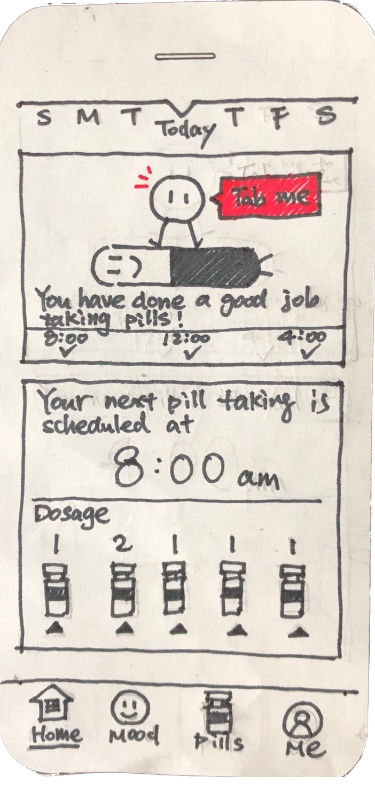 S M T Today T F S
Tab me
You have done a good job
taking pills!
8:00 12:00 4:00
Your next pill taking is
scheduled at
8:00 am
Dosage
1 2 1 1 1
Home Mood Pills Me